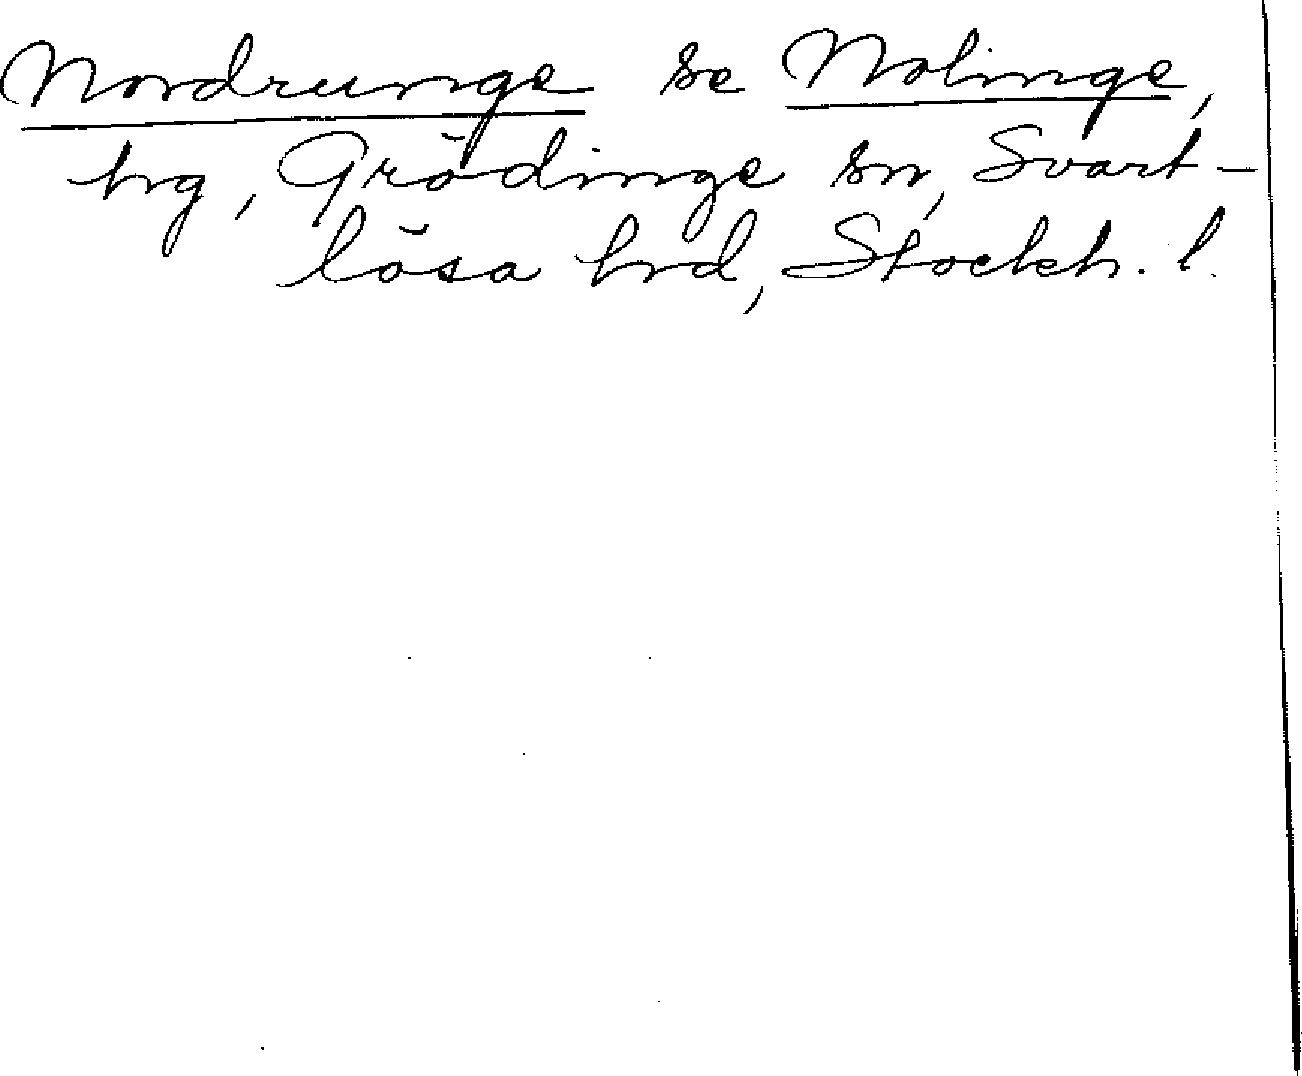 Nordrunge se Nolinge,
hg, Grödinge sn, Svart-
lösa hrd, Stockh. l.